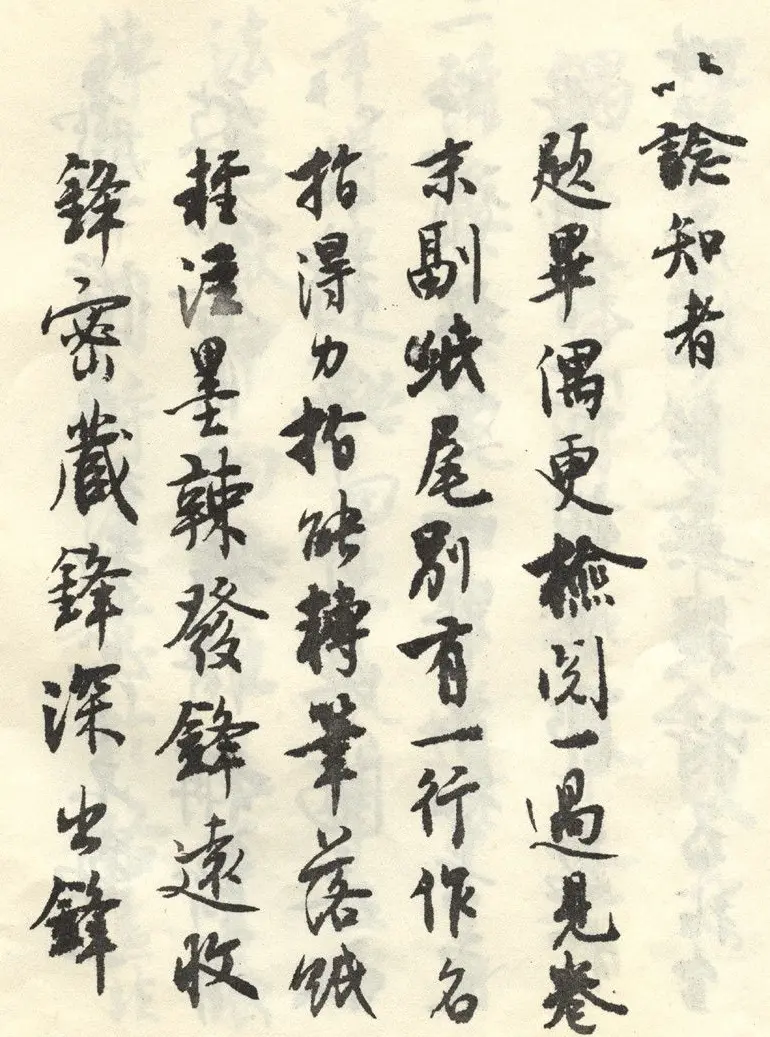 以諗知者
題畢偶更檢閱一過見卷
末副紙尾別有一行作名
指得力指能轉筆落紙
輕濃墨辣發鋒遠收
鋒密藏鋒深出鋒